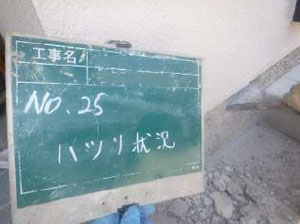 工事名
NO.25
ハツリ状況